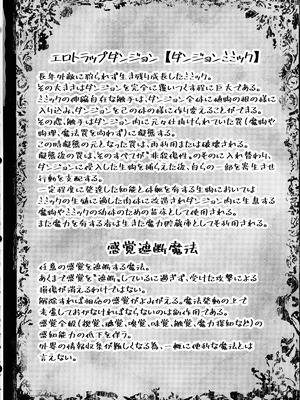 エロトラップダンジョン【ダンジョンミミック】
長年外敵に狩られず生き残り成長したミミック。
その大きさはダンジョンを完全に覆いつくす程に巨大である。
ミミックの伸縮自在な触手は、ダンジョン全体に植物の根の様に
入り込み、ダンジョンを己の体の様に作り変えることができる。
その際、触手はダンジョン内に元々仕掛けられていた罠(魔物や
物理、魔法罠を問わず)に擬態する。
この時擬態の元となった罠は、再利用または破壊される。
擬態後の罠は、そのすべてが"非殺傷"。のそれに入れ替わり、
ダンジョンに侵入した生物を捕らえた後、自らの一部を寄生させ
行動を支配する。
一定程度に発達した知能と体躯を有する生物においては
ミミックの生殖に適した肉体に改造されダンジョン内に生息する
魔物やミミックの幼体のための苗床として使用される。
また魔力を有する者は生きた魔力貯蔵庫として利用される。
感覚遮断魔法
任意の感覚を遮断する魔法。
あくまで感覚を"遮断"。しているに過ぎず、受けた攻撃による
損傷が消えるわけではない。
解除すれば相応の感覚がよみがえる。魔法発動の上で
考慮しておかなければならないのは副作用である。
感覚全般(視覚、聴覚、嗅覚、味覚、触覚、魔力探知など)の
感知能力の低下を伴う。
外界の情報収集が難しくなる為、一概に便利な魔法とは
言えない。